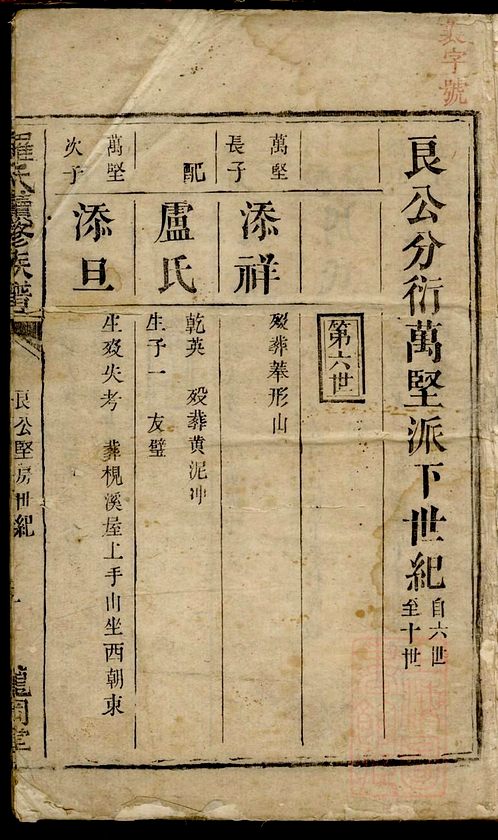 良公分衍萬堅派下世紀
自六世
至十世
第六世
萬堅
長子
添祥
歿葬菶形山
配
盧氏
乾英 歿葬黄泥冲
生子一 友璧
萬堅
次子
添旦
生歿失考 葬梘溪屋上手山坐西朝東
羅氏續修族譜
良公堅房世紀
字號